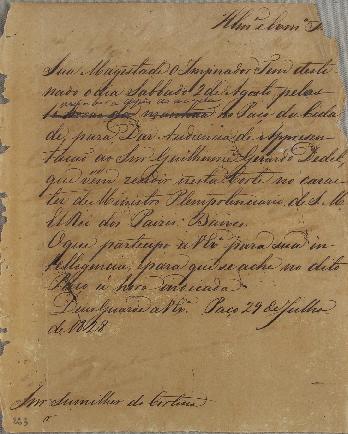 Illmo e Exmo Sr.
Sua Magestade O Imperador Tem desti
nado o dia Sabbado 2 de Agosto pelas
no Paço da Cida
de, para Dar audiencia de Apresen
tação ao Snr Guilherme Gerardo Dedel,
que vem rezidir nesta Corte no carac
ter de Ministro Plenipotenciario de S. M.
El Rei dos Paizes Baixos.
O que participo a VExa para sua in
telligencia, e para que se ache no dito
Paço á hora indicada.
Deus Guarde a VExa Paço 29 de Julho
de 1828
Snr Sumilher da Cortina